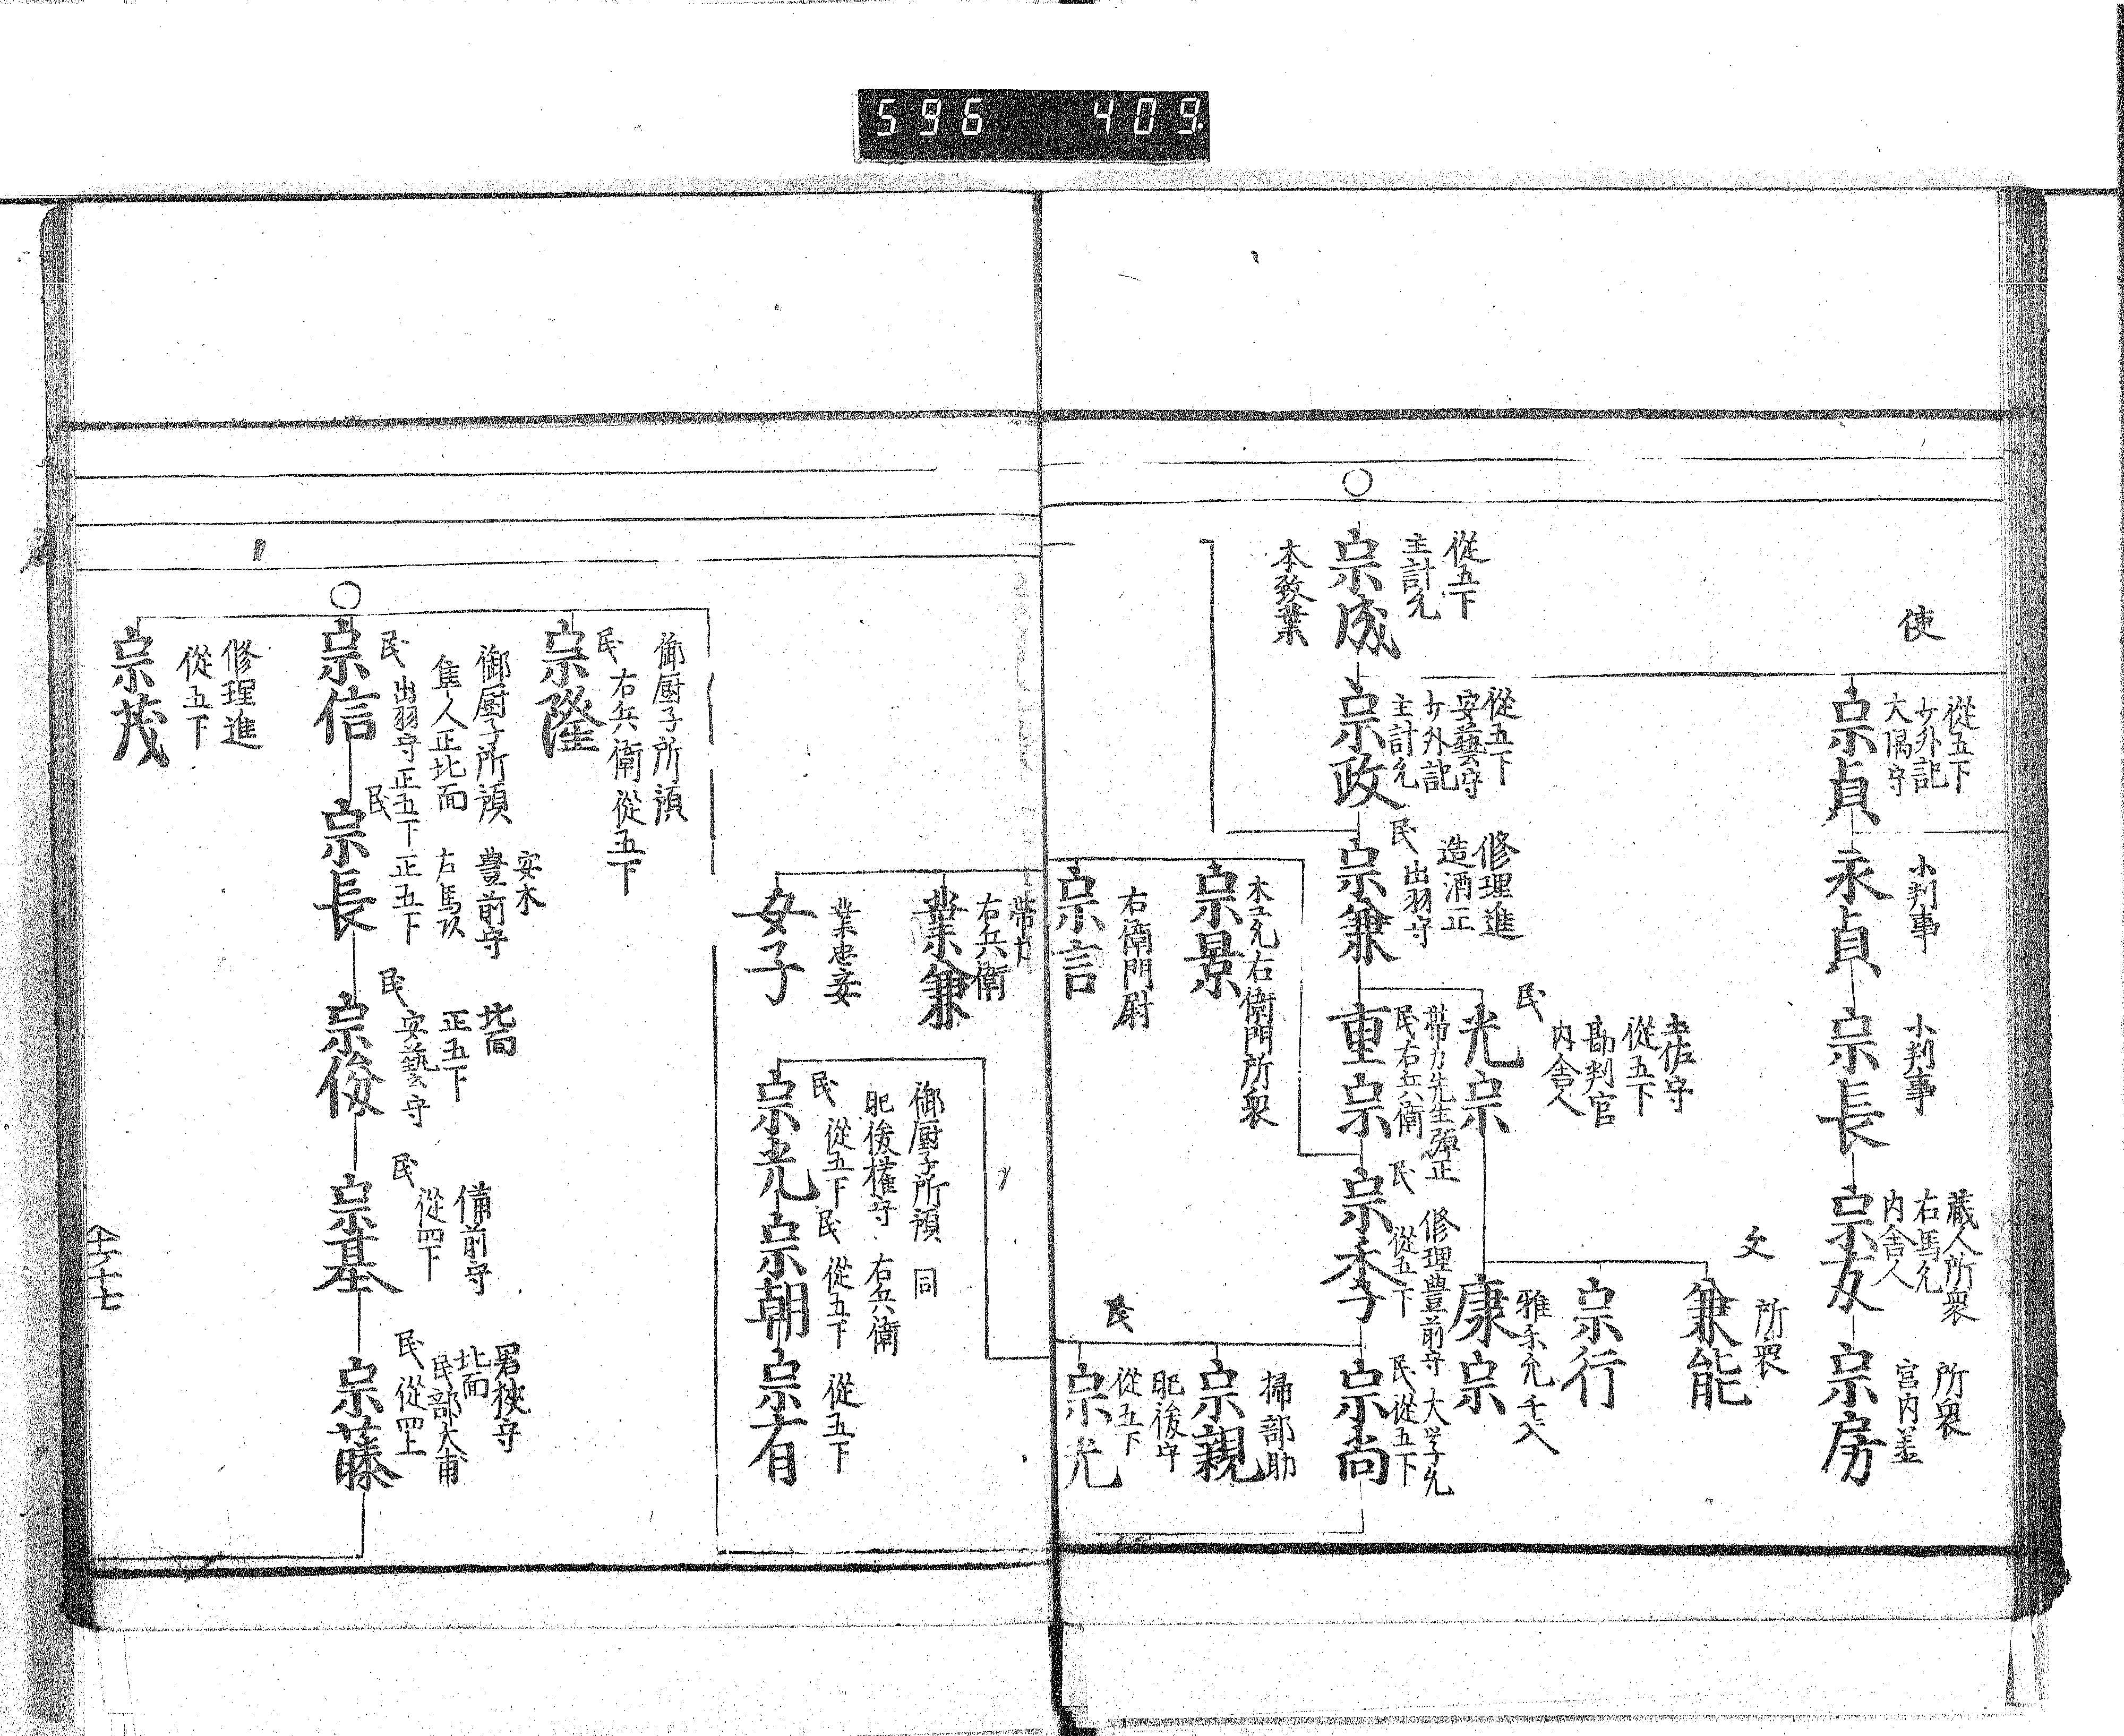 596 409
使
宗貞
從五下
少外記
大隅守
永貞
小判事
宗長
小判事
宗友
蔵人所衆
右馬允
内舎人
宗房
所衆
宮内
○
宗成
從五下
主計允
本致業
宗政
從五下
安藝守
少外記
主計允
宗兼
修理進
造酒正
民 出羽守
光宗
民
土佐守
從五下
勘判官
内舎人
重宗
帯刀先生弾正
民右兵衛
文
兼能
所衆
宗行
康宗
雅楽允
宗季
修理豊前守
民 從五下
宗尚
大学允
民從五下
宗景
木工允右衛門所衆
宗言
右衛門尉
宗親
掃部助
民
宗光
肥後守
從五下
業兼
帯刀
右兵衛
女子
業忠妾
宗光
御厨子所預
肥後権守
民 從五下
宗朝
同
右兵衛
民 從五下
宗有
從五下
宗隆
御厨子所預
民 右兵衛 從五下
○
宗信
御厨子所預
隼人正北面
民 出羽守正五下
宗長
安木
豊前守
右馬
民 正五下
宗俊
北面
正五下
民 安藝守
宗基
備前守
民 從四下
宗藤
若狭守
北面
民部大甫
民 從四上
宗茂
修理進
從五下